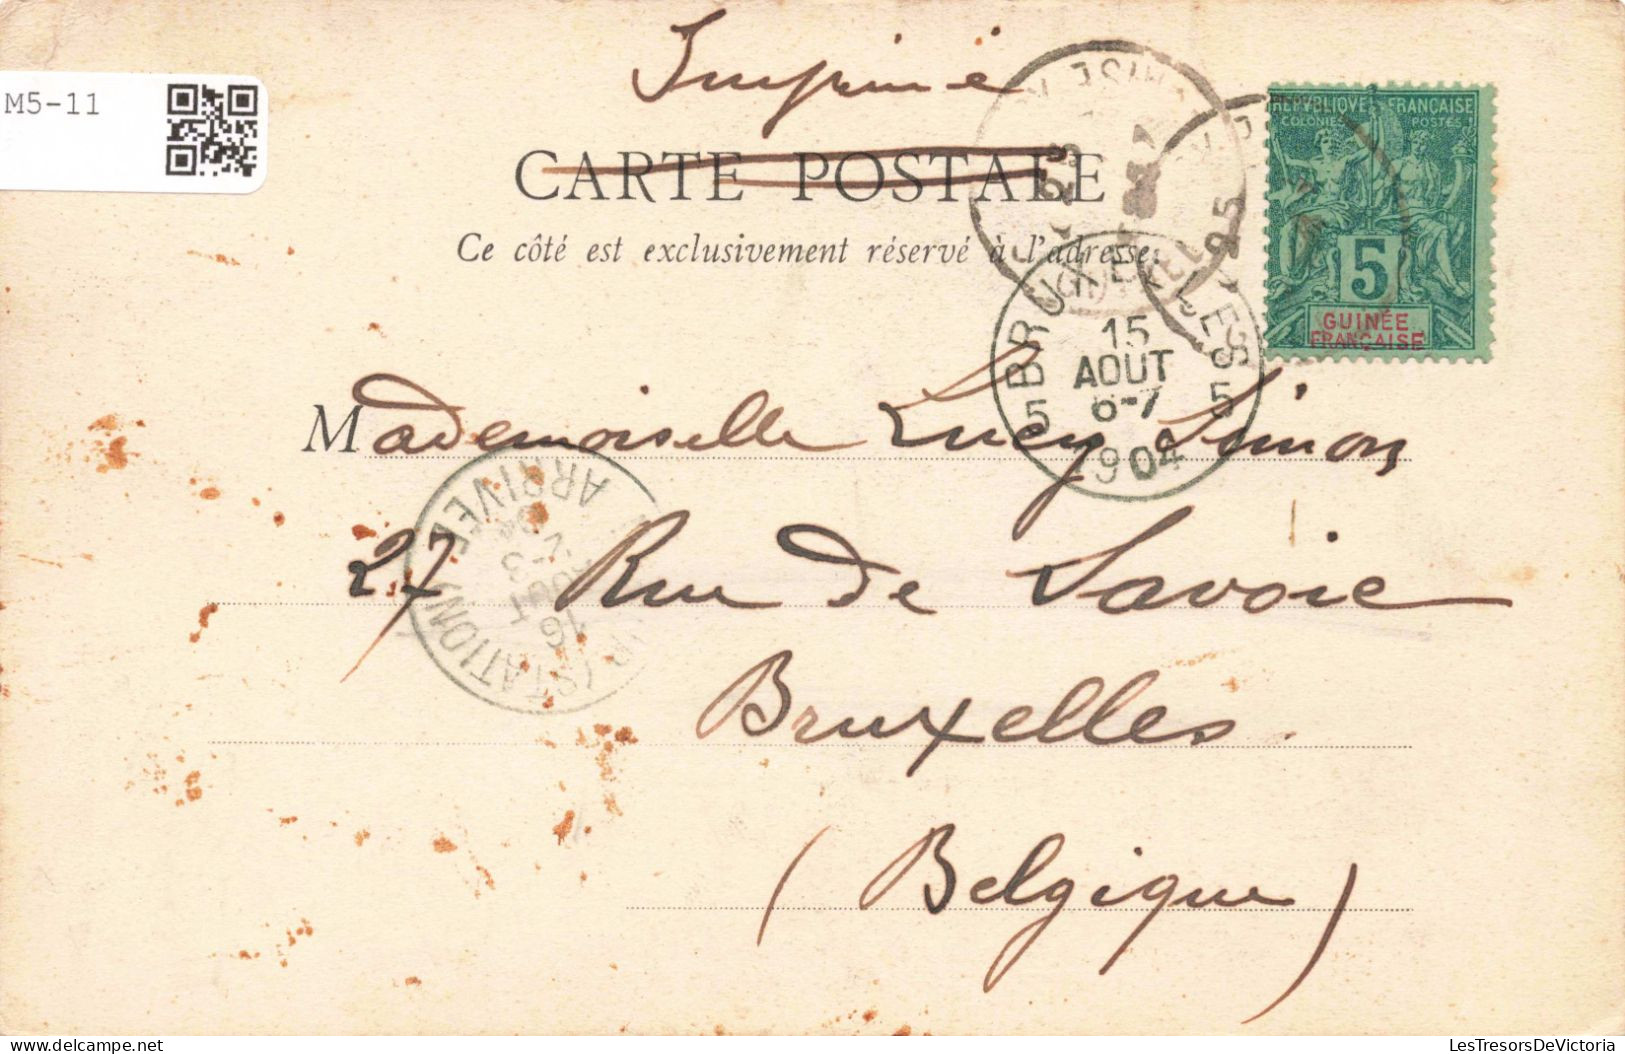 Imprimé
M5-11
CARTE POSTALE
Ce côté est exclusivement réservé à l'adresse.
REPVBLIQVE FRANÇAISE
COLONIES POSTES
5
GUINÉE
FRANÇAISE
25
BRUXELLES
5 5
15
AOUT
6-7
1904
Mademoiselle Lucy Simon
27 Rue de Savoie
Bruxelles.
(Belgique)
(STATION)
ARRIVEE
16
AOUT
LesTresorsDeVictoria.com